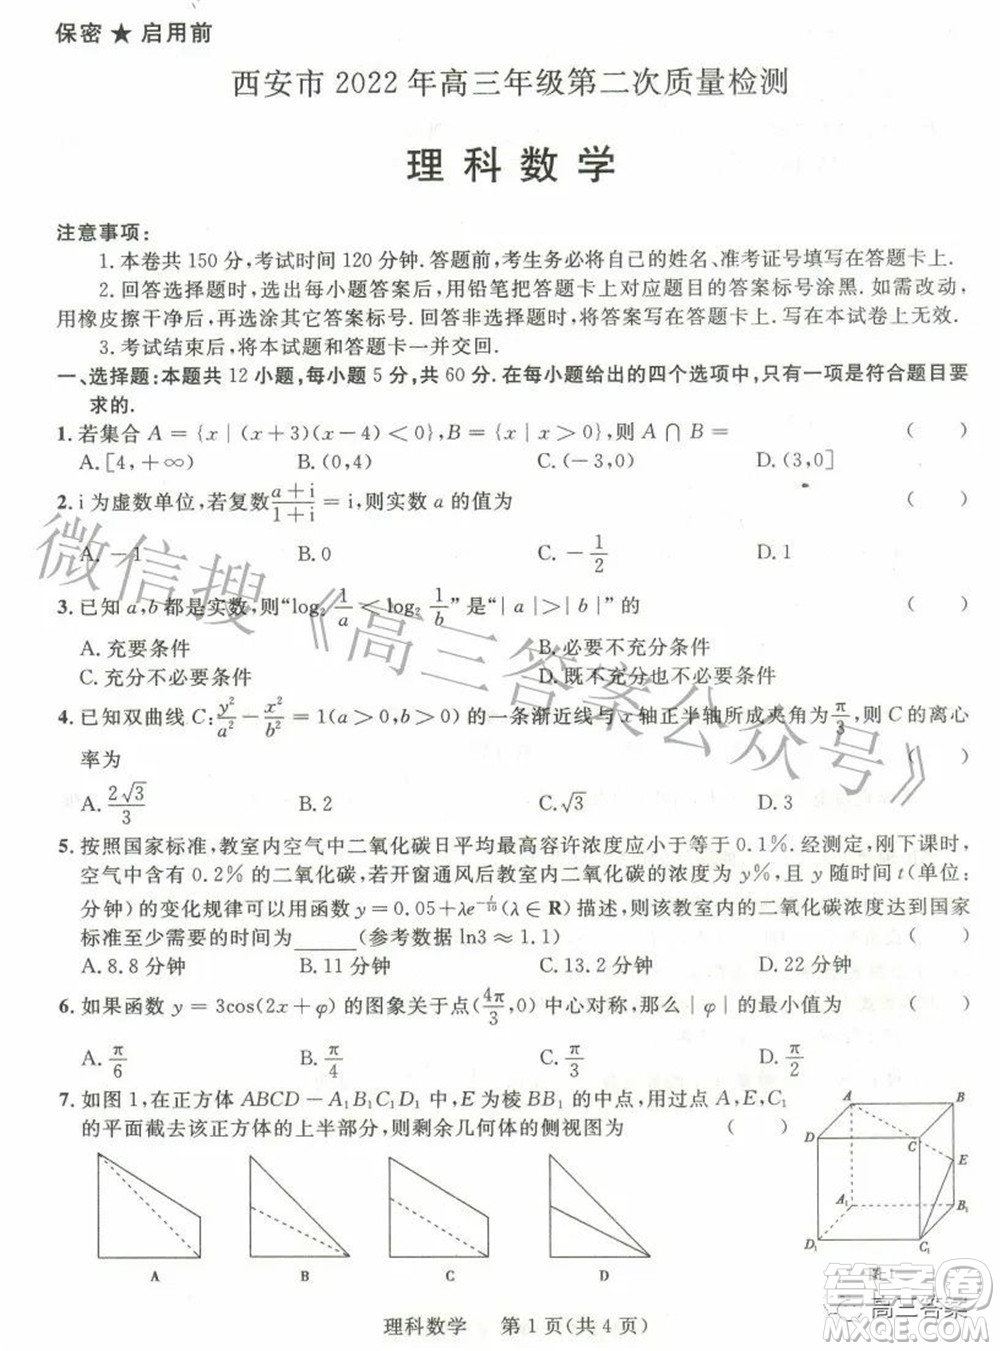 保密 ★ 启用前
西安市 2022 年高三年级第二次质量检测
理科数学
注意事项：
1. 本卷共 150 分，考试时间 120 分钟. 答题前，考生务必将自己的姓名、准考证号填写在答题卡上.
2. 回答选择题时，选出每小题答案后，用铅笔把答题卡上对应题目的答案标号涂黑. 如需改动，
用橡皮擦干净后，再选涂其它答案标号. 回答非选择题时，将答案写在答题卡上. 写在本试卷上无效.
3. 考试结束后，将本试题和答题卡一并交回.
一、选择题：本题共 12 小题，每小题 5 分，共 60 分. 在每小题给出的四个选项中，只有一项是符合题目要
求的.
1. 若集合 A = {x | (x+3)(x-4) < 0}, B = {x | x > 0}, 则 A ∩ B = (　　)
A. [4, +∞) B. (0,4) C. (-3,4) D. (3,0]
2. i 为虚数单位，若复数 (a+i)/(1+i) = i, 则实数 a 的值为 (　　)
A. -1 B. 0 C. -1/2 D. 1
3. 已知 a, b 都是实数，则“log₂ 1/a < log₂ 1/b”是“| a | > | b |”的 (　　)
A. 充要条件 B. 必要不充分条件
C. 充分不必要条件 D. 既不充分也不必要条件
4. 已知双曲线 C: y²/a² - x²/b² = 1(a > 0, b > 0) 的一条渐近线与 x 轴正半轴所成夹角为 π/3, 则 C 的离心
率为 (　　)
A. 2√3/3 B. 2 C. √3 D. 3
5. 按照国家标准，教室内空气中二氧化碳日平均最高容许浓度应小于等于 0.1%. 经测定，刚下课时，
空气中含有 0.2% 的二氧化碳，若开窗通风后教室内二氧化碳的浓度为 y%, 且 y 随时间 t (单位:
分钟) 的变化规律可以用函数 y = 0.05 + λe^(-t/10) (λ ∈ R) 描述，则该教室内的二氧化碳浓度达到国家
标准至少需要的时间为______(参考数据 ln3 ≈ 1.1) (　　)
A. 8.8 分钟 B. 11 分钟 C. 13.2 分钟 D. 22 分钟
6. 如果函数 y = 3cos(2x + φ) 的图象关于点 (4π/3, 0) 中心对称，那么 | φ | 的最小值为 (　　)
A. π/6 B. π/4 C. π/3 D. π/2
7. 如图 1, 在正方体 ABCD - A₁B₁C₁D₁ 中，E 为棱 BB₁ 的中点，用过点 A, E, C₁
的平面截去该正方体的上半部分，则剩余几何体的侧视图为 (　　)
A B C D
A B
D C
E
A₁ B₁
D₁ C₁
理科数学　第 1 页(共 4 页)
微信搜《高三答案公众号》
答案圈
高三答案